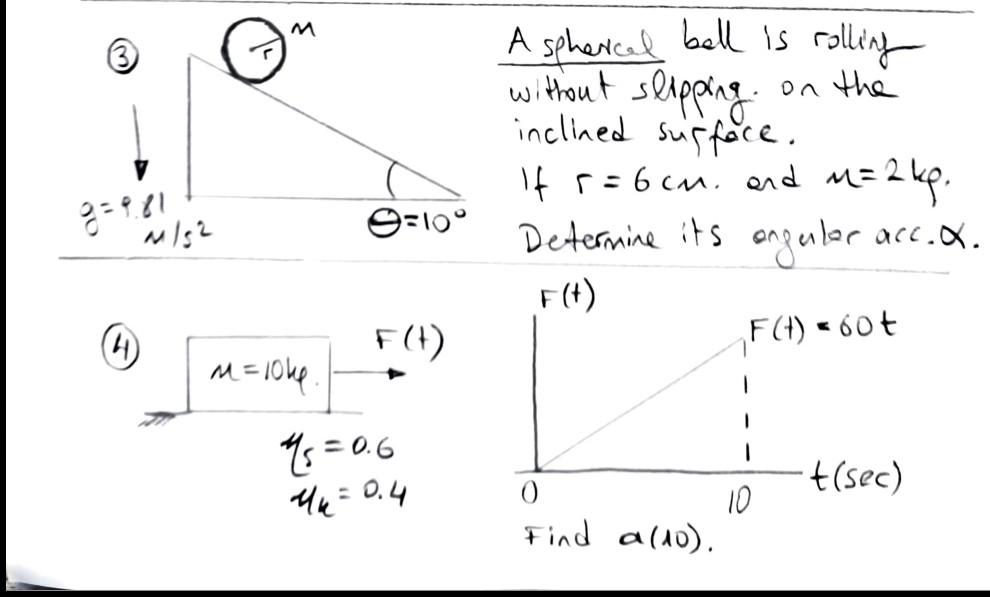 ③
m
r
A spherical ball is rolling
without slipping. on the
inclined surface.
If r = 6 cm. and m = 2 kg.
Determine its angular acc. α.
g = 9.81
m/s²
Θ=10°
④
m = 10 kg.
F(t)
μs = 0.6
μk = 0.4
F(t)
F(t) = 60t
0
10
t(sec)
Find a(10).